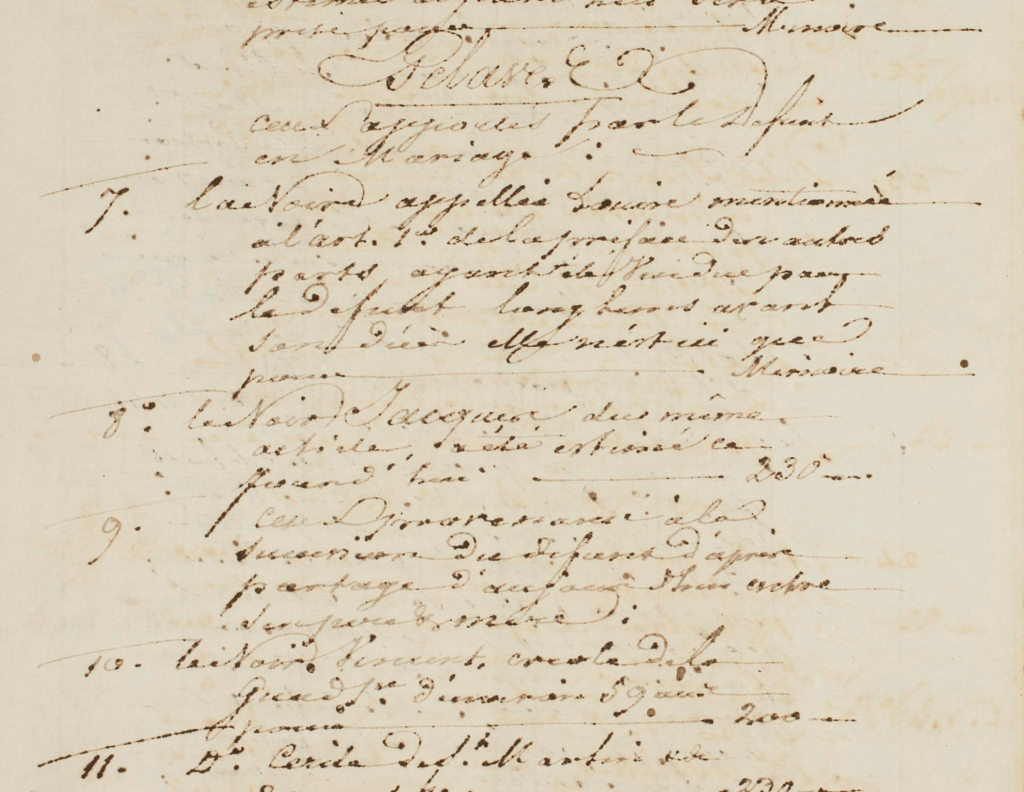 prisé pour Mémoire
Esclaves
ceux apportés par le Defunt
en Mariage :
7. la Noire appellée Louise mentionnée
à l'art. 1er de la préface des autres
parts ayant été Vendue par
le défunt longtems avant
son décès elle n'est ici que
pour Mémoire
8° le Noir Jacques du même
article, a été estimé ce
jourd'hui 230
9. ceux provenant à la
succession du défunt d'après
partage d'aujourd'hui entre
ses père & mère :
10. le Noir Vincent, creole de la
Guadpe d'environ 59 ans
pour 200
11. Do. Cecile de St. Martin
230